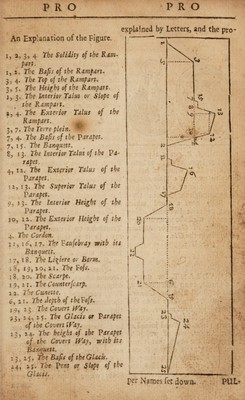 PRO
PRO
An Explanation of the Figure.
1, 2, 3, 4 The Solidity of the Ram-
part.
1, 2. The Basis of the Rampart.
3, 4. The Top of the Rampart.
3, 5. The Height of the Rampart.
1, 3. The Interior Talus or Slope of
the Rampart.
2, 4. The Exterior Talus of the
Rampart.
3, 7. The Terre plein.
7, 4. The Basis of the Parapet.
7, 15. The Banquet.
8, 13. The Interior Talus of the Pa-
rapet.
4, 12. The Exterior Talus of the
Parapet.
12, 13. The Superior Talus of the
Parapet.
9, 13. The Interior Height of the
Parapet.
10, 12. The Exterior Height of the
Parapet.
4. The Cordon.
27. The Fausebray with its
Banquets.
17, 18. The Leziere or Berm.
28, 19, 20, 21. The Foss.
18, 20. The Scarpe.
19, 21. The Counterscarp.
22. The Cunette.
6, 21. The depth of the Foss.
19, 23. The Covert Way.
23, 24, 25. The Glacis or Parapet
of the Covert Way.
23, 24. The height of the Parapet
of the Covert Way, with its
Banquets.
23, 25. The Basis of the Glacis.
24, 25. The Pent or Slope of the
Glacis.
explained by Letters, and the pro-
per Names set down.
PUL-